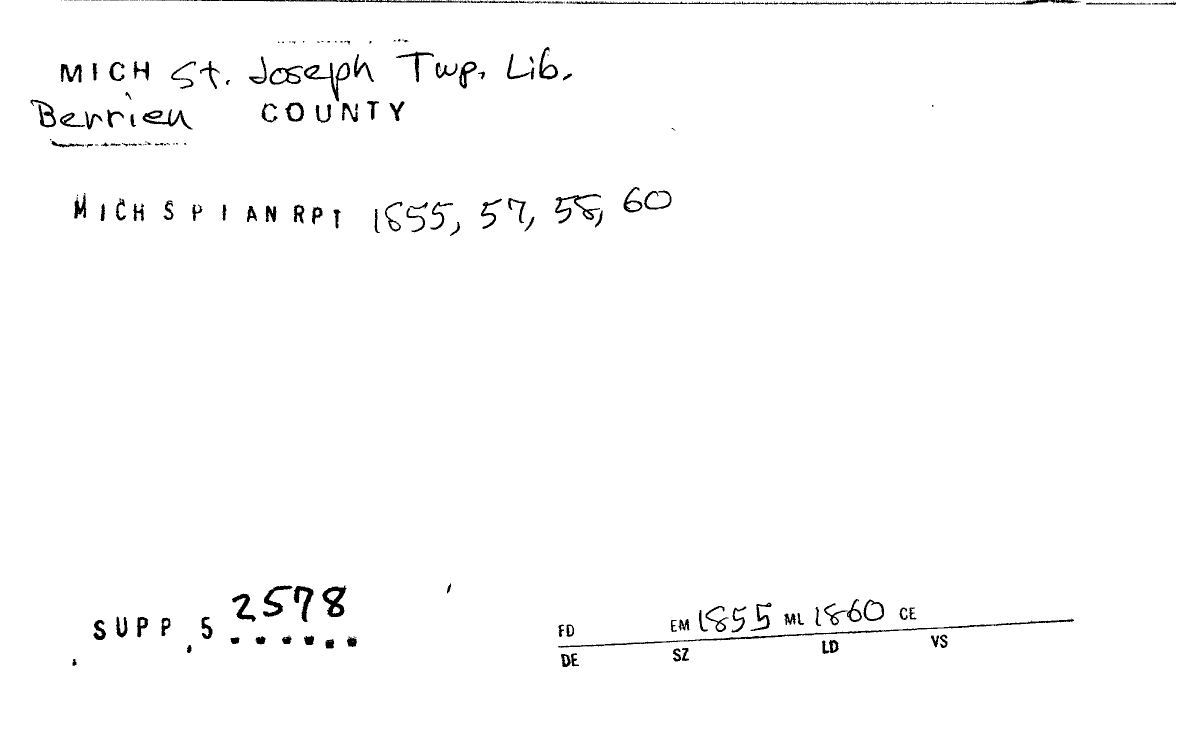 MICH St. Joseph Twp. Lib.
Berrien COUNTY
MICH S P I AN RPT 1855, 57, 58, 60
SUPP. 5 2578
FD EM 1855 ML 1860 CE
DE SZ LD VS